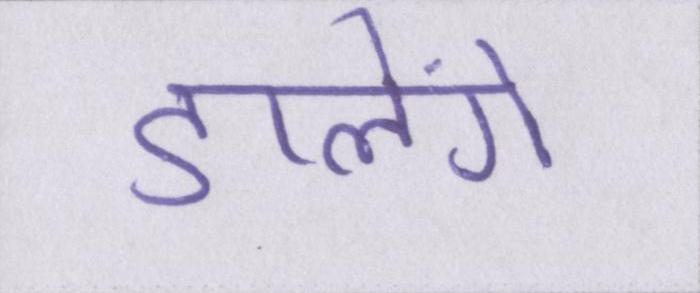 डालेंगे